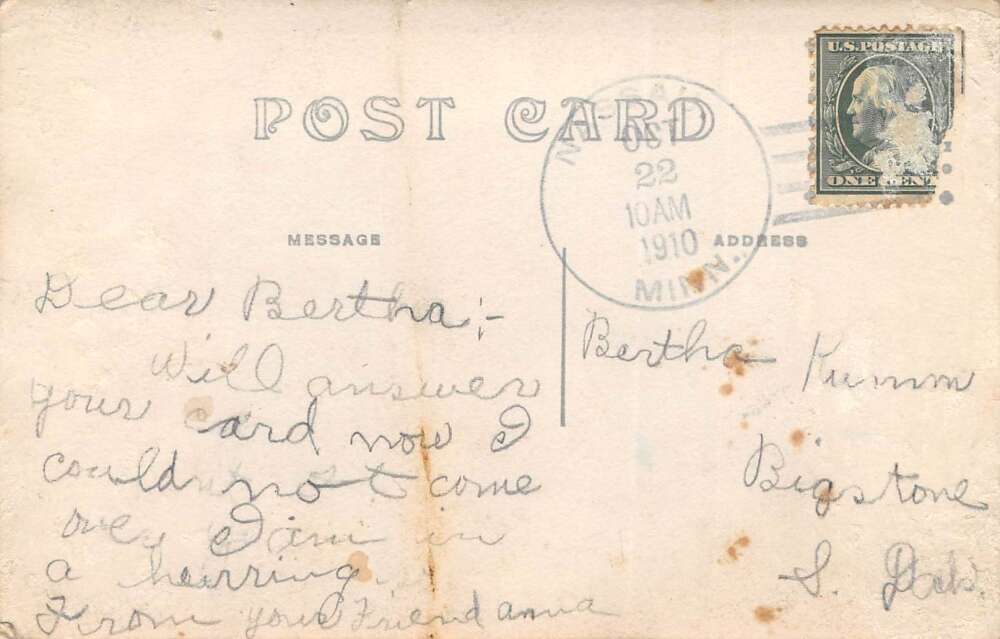 POST CARD
U.S. POSTAGE
ONE CENT
OCT
22
10AM
1910
MINN.
MESSAGE
ADDRESS
Dear Bertha;-
Will answer
your card now I
could not come
over I am in
a herring.
From your Friend anna
Bertha Kumm
Bigstone
S. Dak.